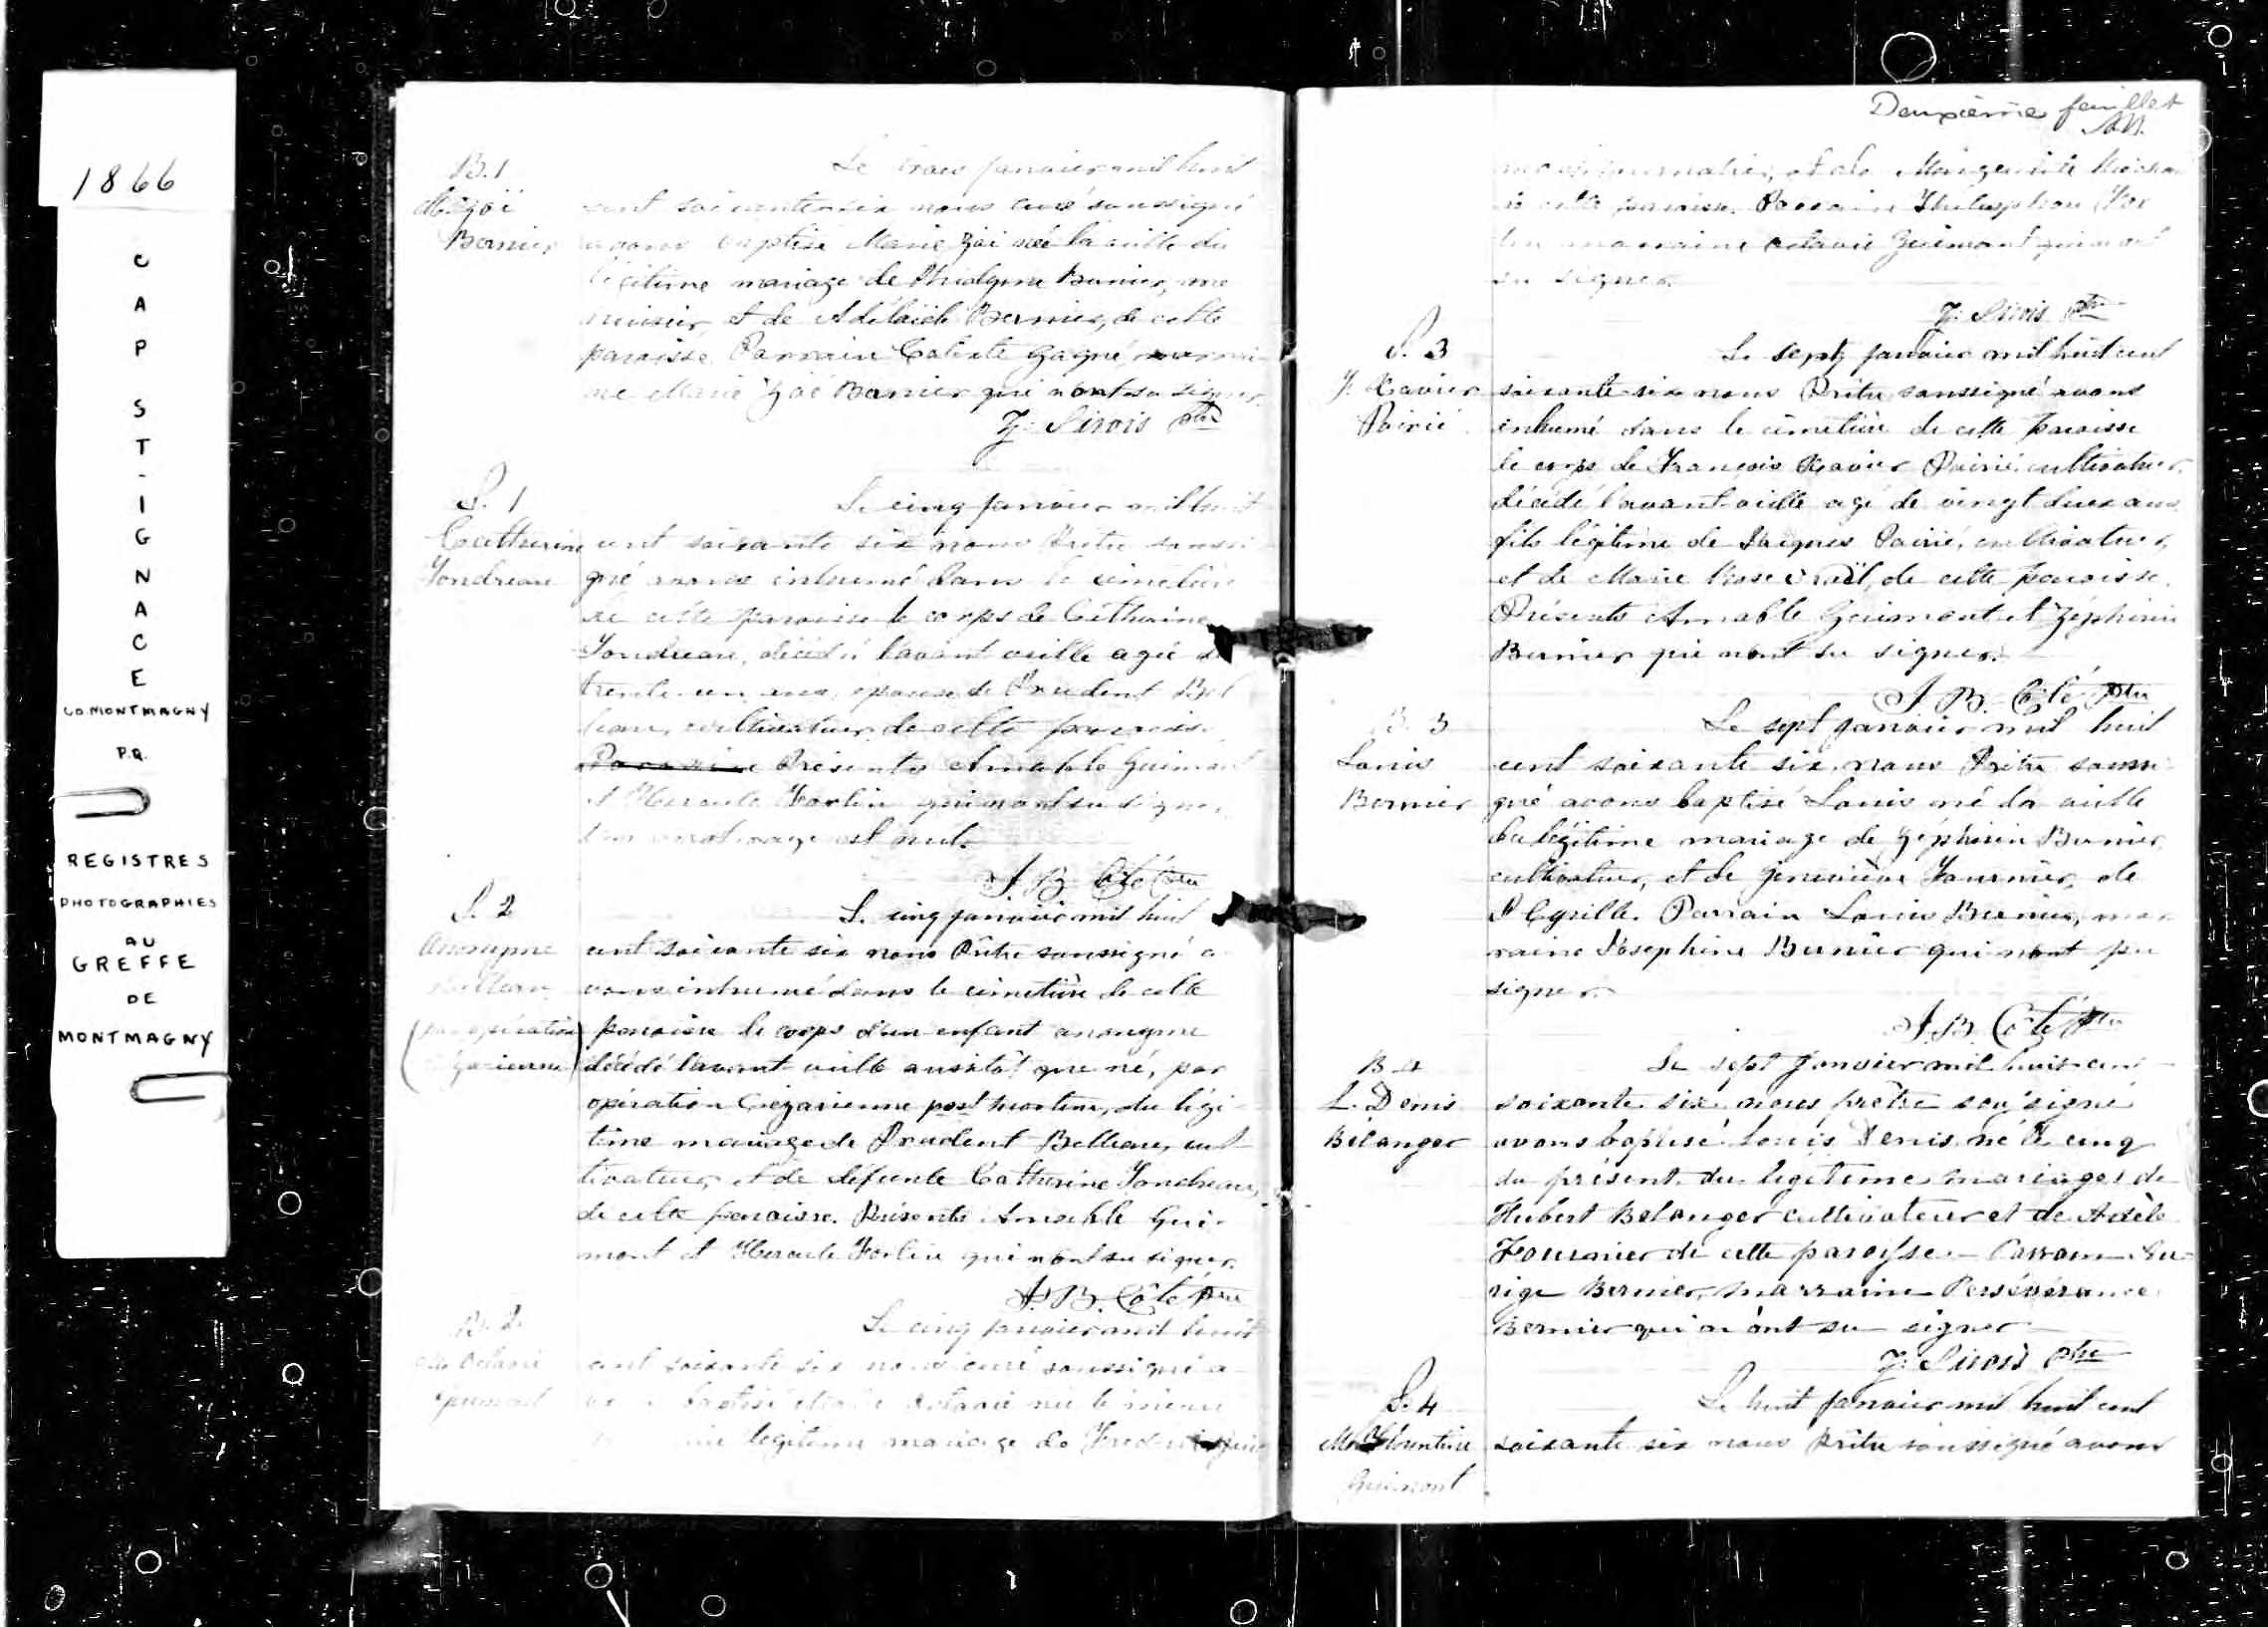 1866
CAP ST-IGNACE
CO. MONTMAGNY
P.Q.
REGISTRES
PHOTOGRAPHIES
AU
GREFFE
DE
MONTMAGNY
B. 1
Bernier
Le trois janvier mil huit
cent soixante six nous curé soussigné
avons baptisé Marie Zoé née la veille du
légitime mariage de Bernier, me
nuisier, et de Adélaïde Bernier, de cette
paroisse. Parrain Calixte Gagné, marrai
ne Marie Zoé Bernier qui n'ont su signer.
J. Sirois Ptre
S. 1
Catherine
Fondreau
Le cinq janvier mil huit
cent soixante six nous Prêtre soussi
gné avons inhumé dans le cimetière
de cette paroisse le corps de Catherine
Fondreau, décédée l'avant veille agée de
trente un ans, épouse de Prudent Bel
leau, cultivateur de cette paroisse.
Présents Amable Guimont
et Hercule Fortin qui n'ont su signer.
est nul.
J. B. Côté Ptre
S. 2
Anonyme
Belleau
(par opération
Le cinq janvier mil huit
cent soixante six nous Prêtre soussigné a
vons inhumé dans le cimetière de cette
paroisse le corps d'un enfant anonyme
décédé l'avant veille aussitôt que né, par
opération Cezarienne post mortem, du légi
time mariage de Prudent Belleau, cul
tivateur, et de defunte Catherine Fondreau,
de cette paroisse. Présents Amable Gui
mont et Hercule Fortin qui n'ont su signer.
J. B. Côté Ptre
B. 2
Octavie
Guimont
Le cinq janvier mil huit
cent soixante six nous curé soussigné a
vons baptisé Marie Octavie née le même
légitime mariage de
Deuxième feuillet
et de Marguerite
de cette paroisse. Parrain Thelesphore For
tin marraine Octavie Guimont qui n'ont
su signer.
J. Sirois Ptre
S. 3
F. Xavier
Poirié
Le sept janvier mil huit cent
soixante six nous Prêtre soussigné avons
inhumé dans le cimetière de cette paroisse
le corps de François Xavier Poirié, cultivateur,
décédé l'avant-veille agé de vingt deux ans
fils légitime de Jacques Poirié, cultivateur,
et de Marie Rose de cette paroisse.
Présents Amable Guimont et Zéphirin
Bernier qui n'ont su signer.
J. B. Côté Ptre
B. 3
Louis
Bernier
Le sept janvier mil huit
cent soixante six, nous Prêtre soussi
gné avons baptisé Louis né la veille
du légitime mariage de Zéphirin Bernier,
cultivateur, et de Geneviève Fournier, de
St Cyrille. Parrain Louis Bernier, mar
raine Josephine Bernier qui n'ont pu
signer.
J. B. Côté Ptre
B. 4
L. Denis
Bélanger
Le sept Janvier mil huit cent
soixante six nous prêtre sousigné
avons baptisé Louis Denis né le cinq
du présent du legitime mariage de
Hubert Belanger cultivateur et de Adèle
Fournier de cette paroisse. Parrain
Bernier, Marraine Persévérance
Bernier qui n'ont su signer
J. Sirois Ptre
S. 4
Guimont
Le huit janvier mil huit cent
soixante six nous Prêtre soussigné avons